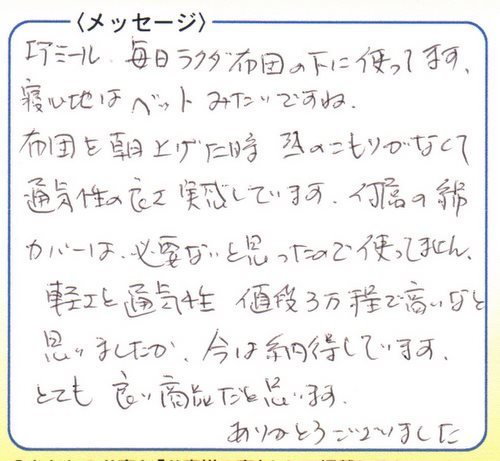 〈メッセージ〉
エアミール 毎日ラクダ布団の下に使ってます、
寝心地はベットみたいですね。
布団を朝上げた時 熱のこもりがなくて
通気性の良さ実感しています。付属の綿
カバーは、必要ないと思ったので使ってません、
軽さと通気性 値段3万程で高いなと
思いましたが、今は納得しています、
とても 良い商品だと思います。
ありがとうございました